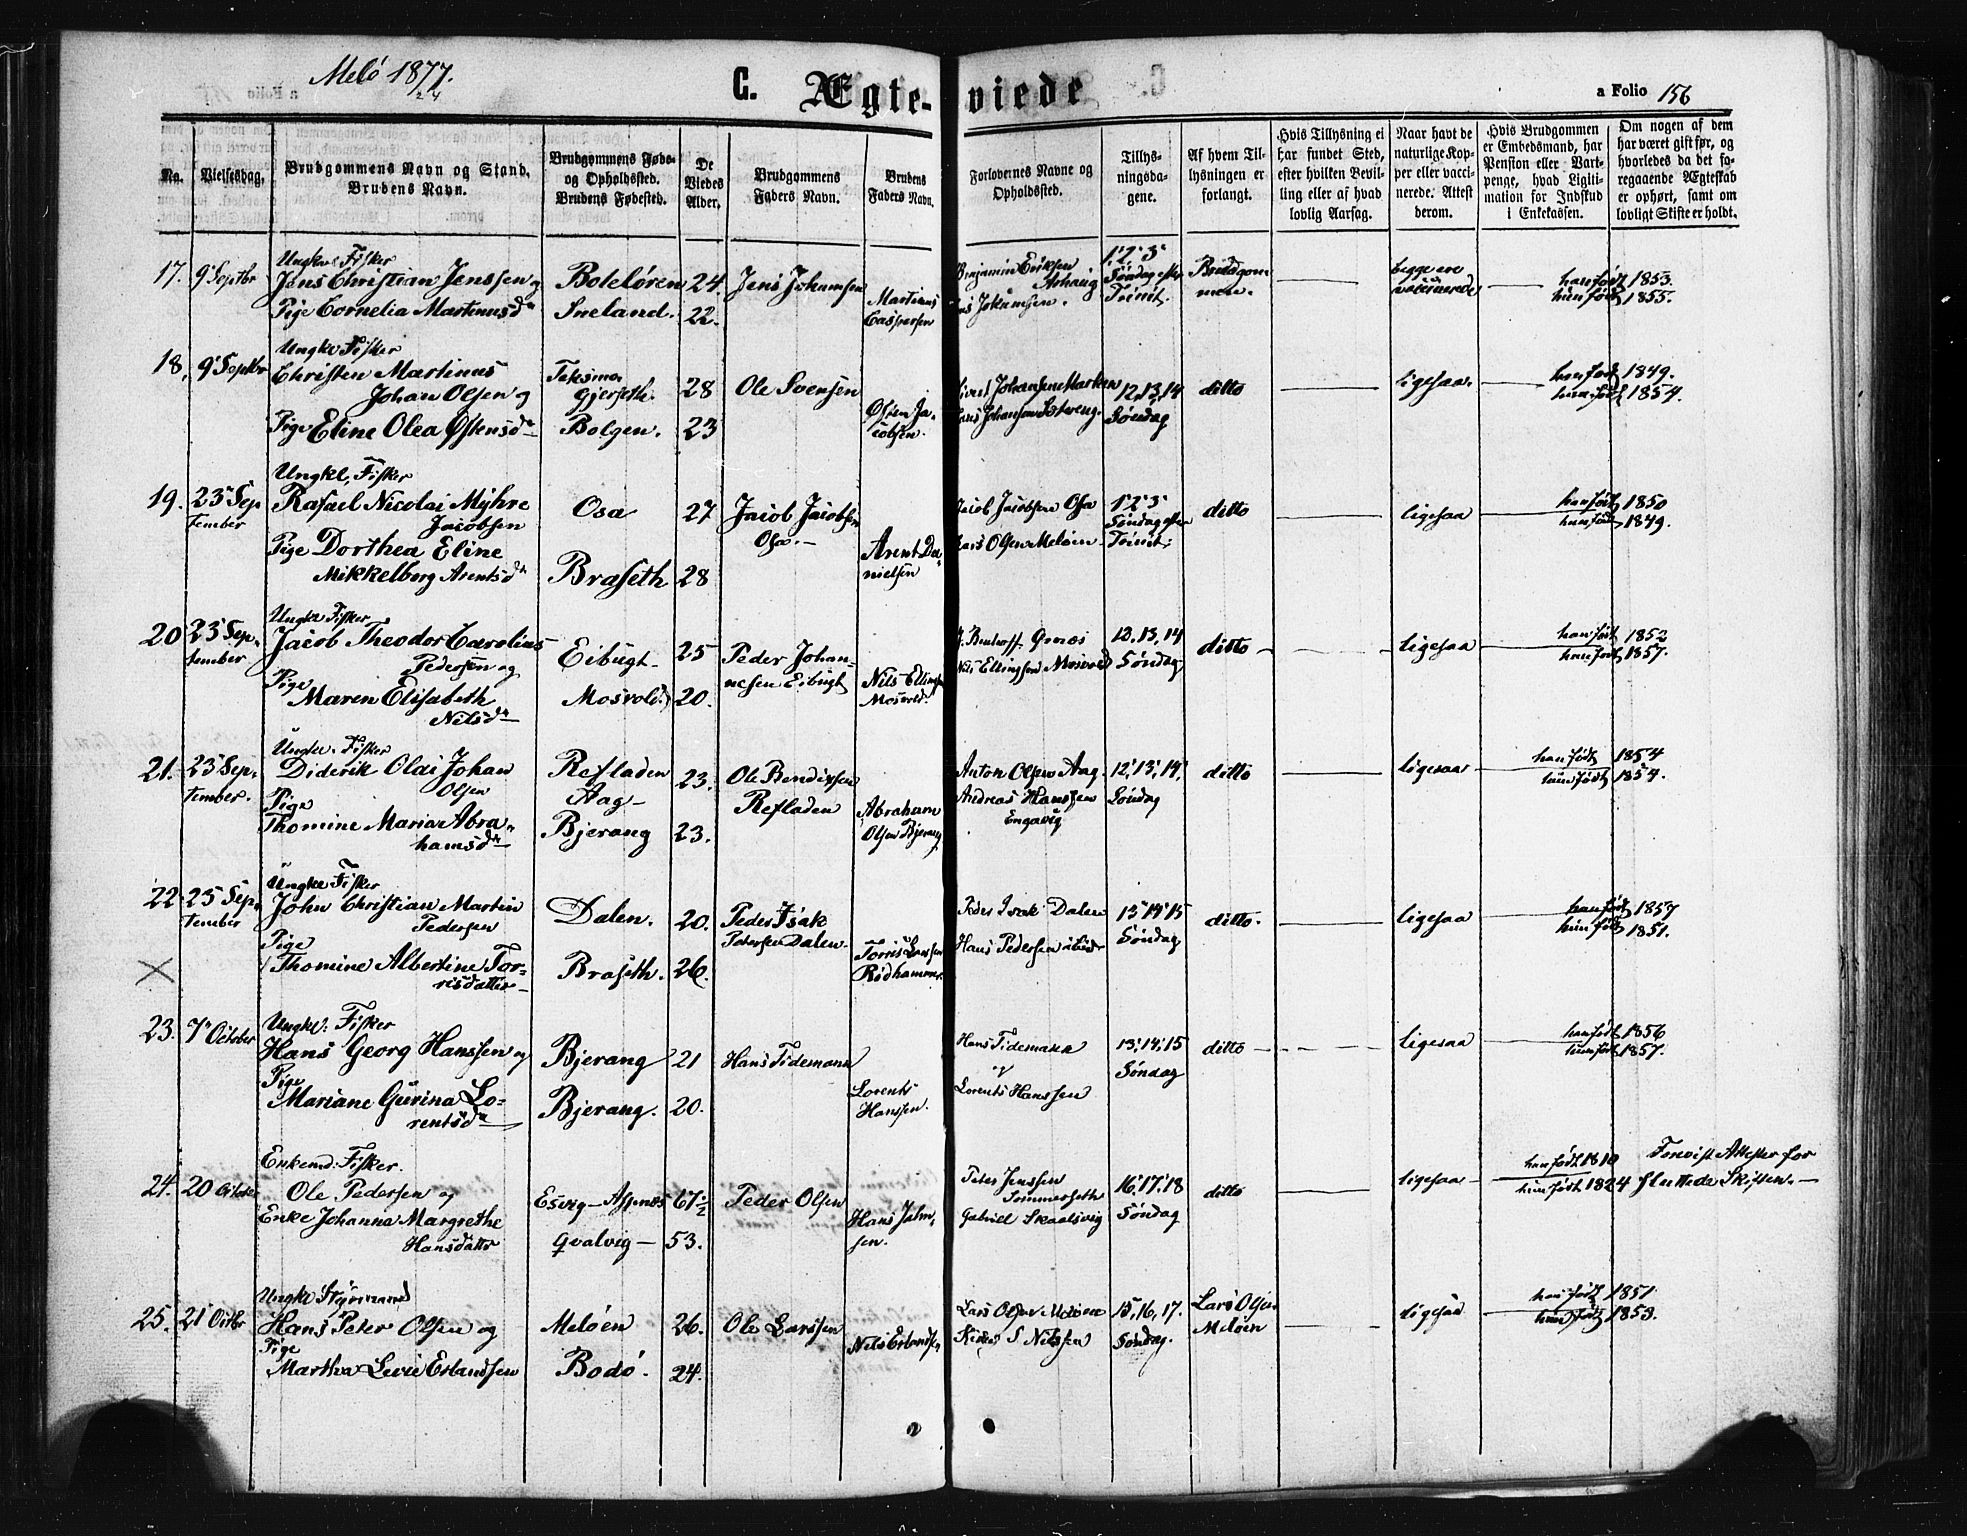 Melö 1877.
C. Ægteviede
a Folio 156
No.
Vielsesdag.
Brudgommens Navn og Stand.
Brudens Navn.
Brudgommens Føde-
og Opholdssted.
Brudens Fødested.
De
Viedes
Alder.
Brudgommens
Faders Navn.
Brudens
Faders Navn.
Forlovernes Navne og
Opholdssted.
Tillys-
ningsda-
gene.
Af hvem Til-
lysningen er
forlangt.
Hvis Tillysning ei
har fundet Sted,
efter hvilken Bevil-
ling eller af hvad
lovlig Aarsag.
Naar havt de
naturlige Kop-
per eller vacci-
nerede. Attest
derom.
Hvis Brudgommen
er Embedsmand, har
Pension eller Vart-
penge, hvad Ligiti-
mation for Indskud
i Enkekassen.
Om nogen af dem
har været gift før, og
hvorledes da det fo-
regaaende Ægteskab
er ophørt, samt om
lovligt Skifte er holdt.
17. 9 Septbr
Ungke Fisker
Jens Christian Jenssen og
Pige Cornelia Martinusd
Boteløren 24.
Sneland. 22.
Jens Johansen
Martinus
Caspersen
Benjamin Eriksen
Jokumsen.
1, 2, 3
Søndag efter
Trinit.
Brudgom
men.
begge ere
vaccinerede
han født 1853.
hun født 1855.
18. 9 Septbr
Ungke Fisker
Christen Martinus
Johan Olsen og
Pige Eline Olea Østensd
Gjerseth. 28
Bolgen. 23
Ole Svensen
Østen Ja-
cobsen.
12, 13, 14
Søndag
ditto
ligesaa
han født 1849.
hun født 1854.
19. 23 Sep
tember
Ungke, Fisker
Rafael Nicolai Myhre
Jacobsen
Pige Dorthea Eline
Mikkelborg Arentsd
Osa 27
Braseth 28
Jacob Jacobsen
Osa.
Arent Da-
nielsen
Jacob Jacobsen Osa
Lars Olsen Meløen
1, 2, 3
Søndag efter
Trinit.
ditto
ligesaa
han født 1850
hun født 1849.
20 23 Sep-
tember
Ungke Fisker
Jacob Theodor Carolius
Pedersen og
Pige
Maren Elisabeth
Nilsd
Eibugt 25
Mosvold. 20.
Peder Johan-
nesen Eibugt
Nils Ellingsen
Mosvold.
Nils Ellingsen Mosvold
12, 13, 14
Søndag
ditto
ligesaa
han født 1852
hun født 1857.
21. 23 Sep-
tember.
Ungke. Fisker
Diderik Olai Johan
Olsen
Pige
Thomine Maria Abra-
hamsd
Refladen
Aag 23.
Bjerang 23.
Ole Bendixsen
Refladen
Abraham
Olsen Bjerang
Anton Olsen Aag.
Andreas Hanssen
Engavig
12, 13, 14,
Søndag
ditto
ligesaa
han født 1854
hun født 1854.
22 23 Sep-
tember
Ungke Fisker
John Christian Martin
Pedersen
Pige
Thomine Albertine Tor-
risdatter
Dalen. 20.
Braseth. 26.
Peder Isak
Petersen Dalen.
Torris Larssen
Rødhammer.
Peder Isak Dalen
Hans Pedersen
13, 14, 15
Søndag
ditto.
ligesaa
han født 1857
hun født 1851.
23. 7 October
Ungke. Fisker
Hans Georg Hanssen og
Pige
Mariane Gurina Lo-
rentsd
Bjerang 21
Bjerang. 20.
Hans Tidemann
Lorents
Hanssen.
Hans Tidemann
og
Lorents Hanssen
13, 14, 15
Søndag
ditto
ligesaa
han født 1856
hun født 1857.
24. 20 October
Enkemd: Fisker.
Ole Pedersen og
Enke Johanna Margrethe
Hansdatter
Esvig – Aspenæs 67 1/2
Qvalvig 53.
Peder Olsen
Hans John-
sen.
Peter Jenssen
Sommerseth
Gabriel Skaalsvig
16, 17, 18
Søndag
ditto
ligesaa
han født 1810
hun født 1824
Forevist Attester for
sluttede Skiften.
25. 21 Octbr
Ungke Styrmand
Hans Peter Olsen og
Pige
Martha Levie Erlandsen
Meløen 26.
Bodö. 24.
Ole Larssen
Nils Erlandsen
Lars Olsen Meløen
S Nilssen
15, 16, 17.
Søndag.
Lars Olsen
Meløen
ligesaa
han født 1851
hun født 1853.